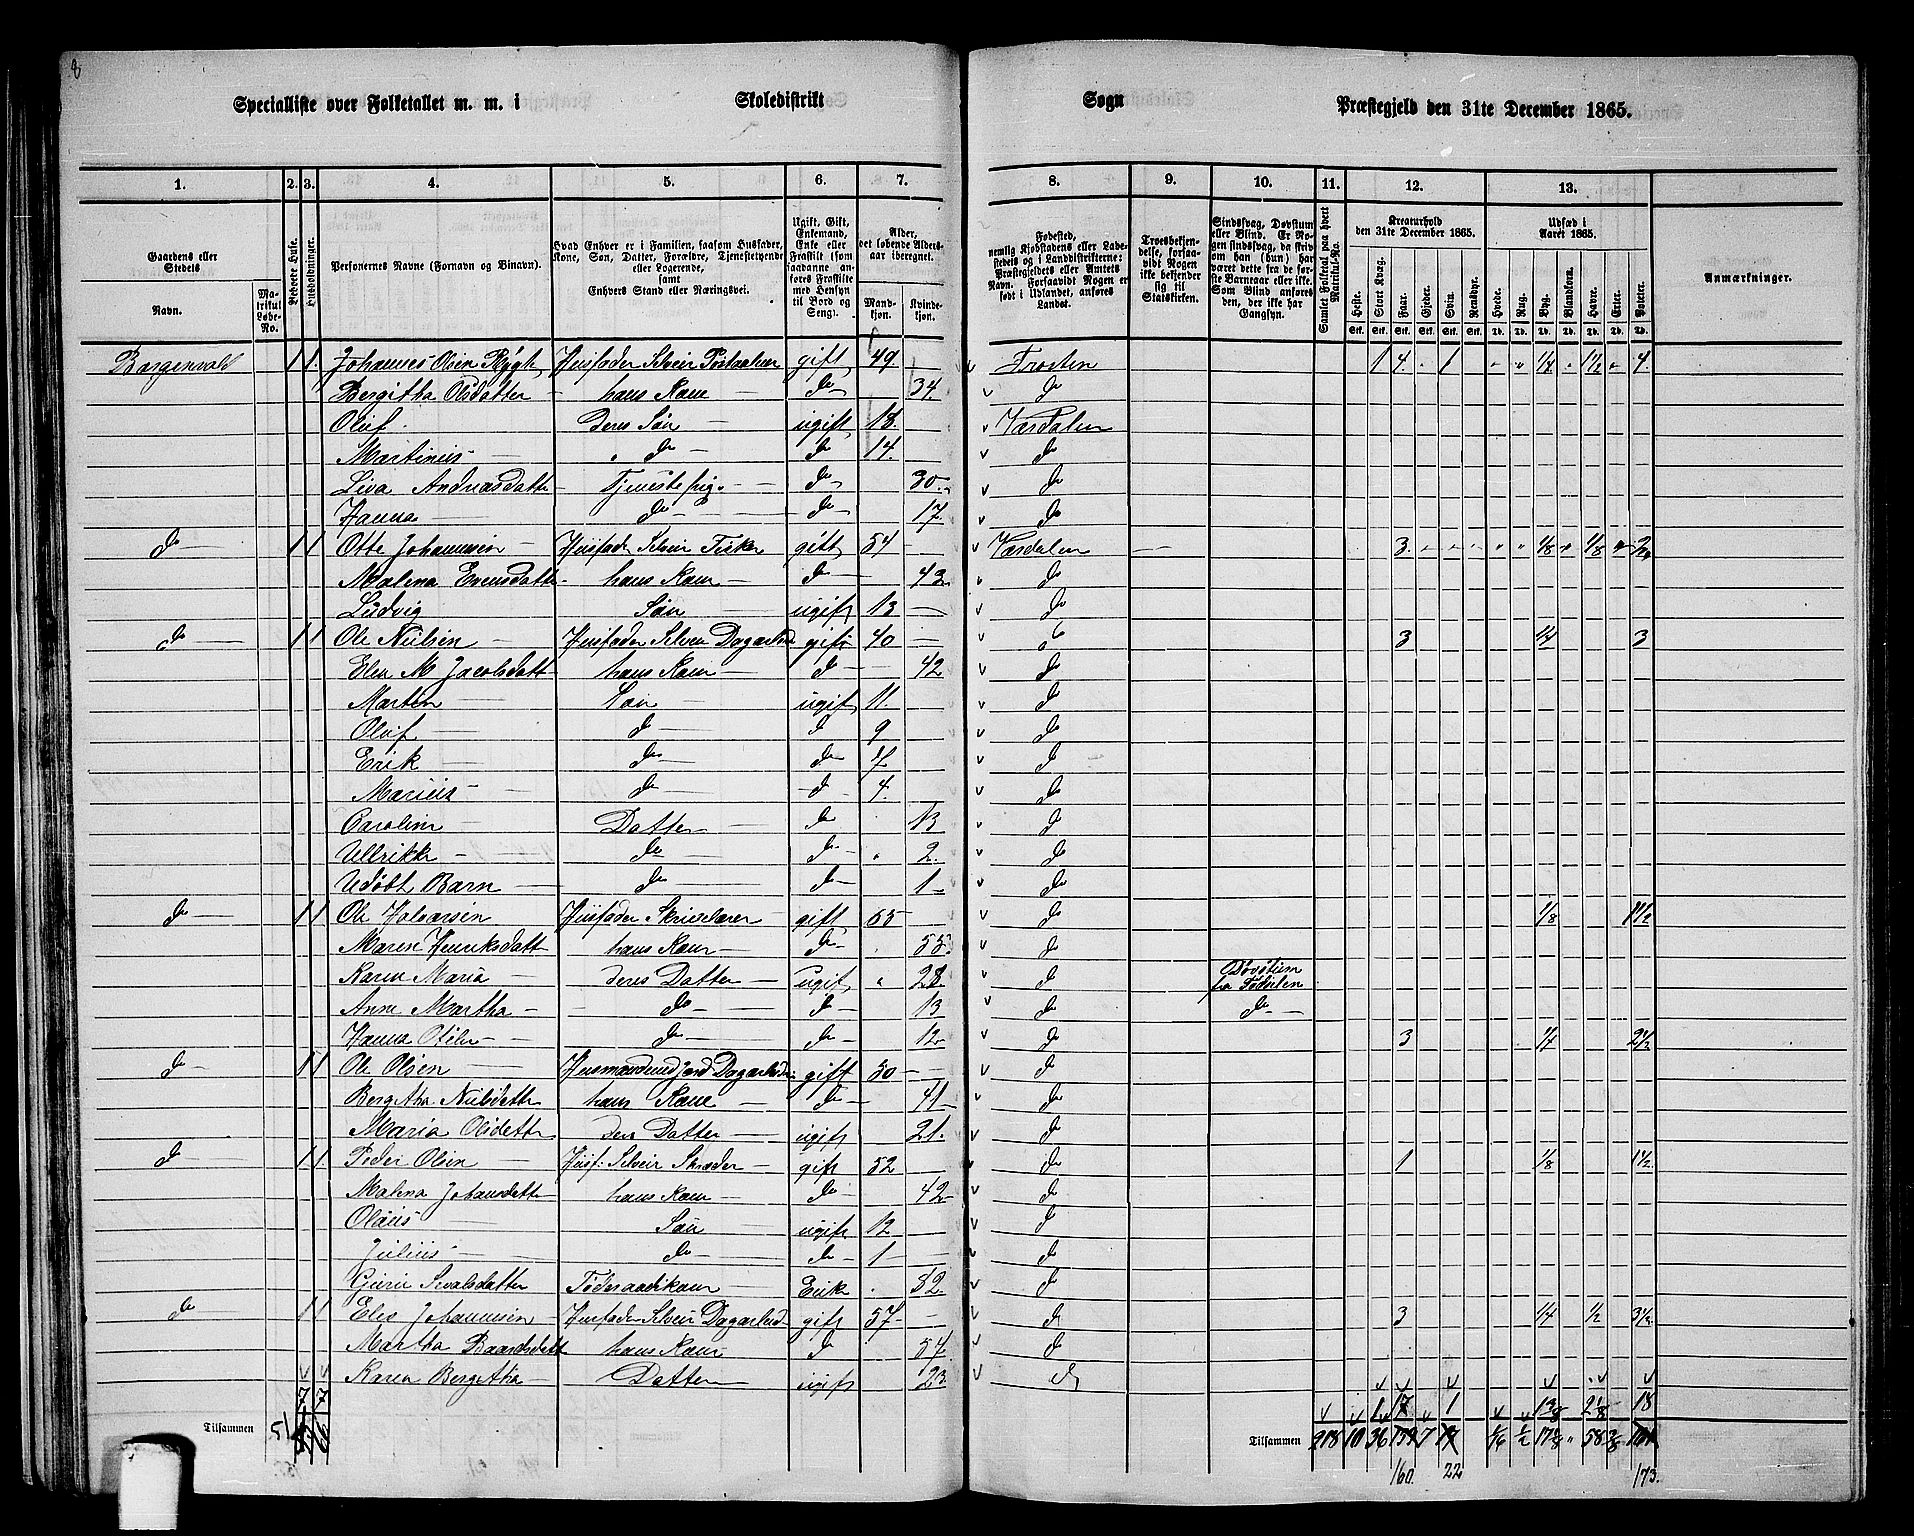 8
Specialliste over Folketallet m. m. i Skoledistrikt Sogn Præstegjeld den 31te December 1865.
1. 2. 3. 4. 5. 6. 7. 8. 9. 10. 11. 12. 13.
Gaardens eller Stedets
Navn. Matrikul Løbe-No.
Beboede Huse.
Husholdninger.
Personernes Navne (Fornavn og Binavn).
Hvad Enhver er i Familien, saasom Husfader, Kone, Søn, Datter, Forældre, Tjenestetyende eller Logerende, samt Enhvers Stand eller Næringsvei.
Ugift, Gift, Enkemand, Enke eller Fraskilt (som saadanne anføres Fraskilte med Hensyn til Bord og Seng).
Alder, det løbende Aldersaar iberegnet.
Mandkjøn. Kvindekjøn.
Fødested, nemlig Kjøbstadens eller Ladestedets og i Landdistrikterne: Præstegjeldets eller Amtets Navn. Forsaavidt Nogen er født i Udlandet, anføres Landet.
Troesbekjendelse, forsaavidt Nogen ikke bekjender sig til Statskirken.
Sindssvag, Døvstum eller Blind. Er Nogen sindssvag, da skriv om han (hun) har været dette fra de første Barneaar eller ikke. Som Blind anføres den, der ikke har Gangsyn.
Samlet Folketal paa hvert Matrikul-No.
Kreaturhold den 31te December 1865.
Heste. Stort Kvæg. Faar. Gjeder. Svin. Rensdyr.
Udsæd i Aaret 1865.
Hvede. Rug. Byg. Blandkorn. Havre. Erter. Poteter.
Anmærkninger.
Borgenvald 1 1 Johannes Olsen Rygh Husfader Selveir gift 49 Frosten 1 4 1 1/4 1 1/2 4
Bergitha Olsdatter hans Kone do 34 do
Oluf deres Søn ugift 18 Værdalen
Martinus do do 14 do
Liva Andreasdatter Tjenestepige do 30 do
Hanna do do 17 do
do 1 1 Otte Johannesen Husfader Selveir Fisker gift 54 Værdalen 3 1/8 1/8 2
Malena Evensdatter hans Kone do 43 do
Ludvig Søn ugift 13 do
do 1 1 Ole Nielsen Husfader Selveier Dagarbeid gift 40 do 3 1/4 3
Elen M Jacobsdatt hans Kone do 42 do
Morten Søn ugift 11 do
Oluf do do 9 do
Erik do do 7 do
Marius do do 4 do
Caroline Datter do 13 do
Ullrikke do do 2 do
Udøbt Barn do do 1 do
do 1 1 Ole Halvorsen Husfader gift 65 do 1/8 1 1/2
Maren Henriksdatt hans Kone do 55 do
Karen Maria deres Datter ugift 28 do Døvstum fra Fødselen
Anne Martha do do 13 do do
Hanna do do 12 do 3 1/4 2 1/2
do 1 1 Ole Olsen Husmand med jord Dagarbeider gift 50 do
Bergitha Nielsdatter hans Kone do 41 do
Maria Olsdatter deres Datter ugift 21 do
do 1 1 Peder Olsen Husf: Selveir Skræder gift 52 do 1 1/8 1 1/2
Malena Johansdatter hans Kone do 42 do
Olaus Søn ugift 12 do
Julius do do 1 do
Sivalsdatter Føderaadskone Enke 82 do
do 1 1 Johannesen Husfader Selveir Dagarbeid gift 57 do 3 1/4 1/2 3 1/2
Martha Baardsdatt hans Kone do 57 do
Karen Bergitha Datter ugift 23 do
7 7 1 17 1 1 3/8 2 1/8 18
Tilsammen 51 66 Tilsammen 918 10 36 139 7 17 58
160 22 173